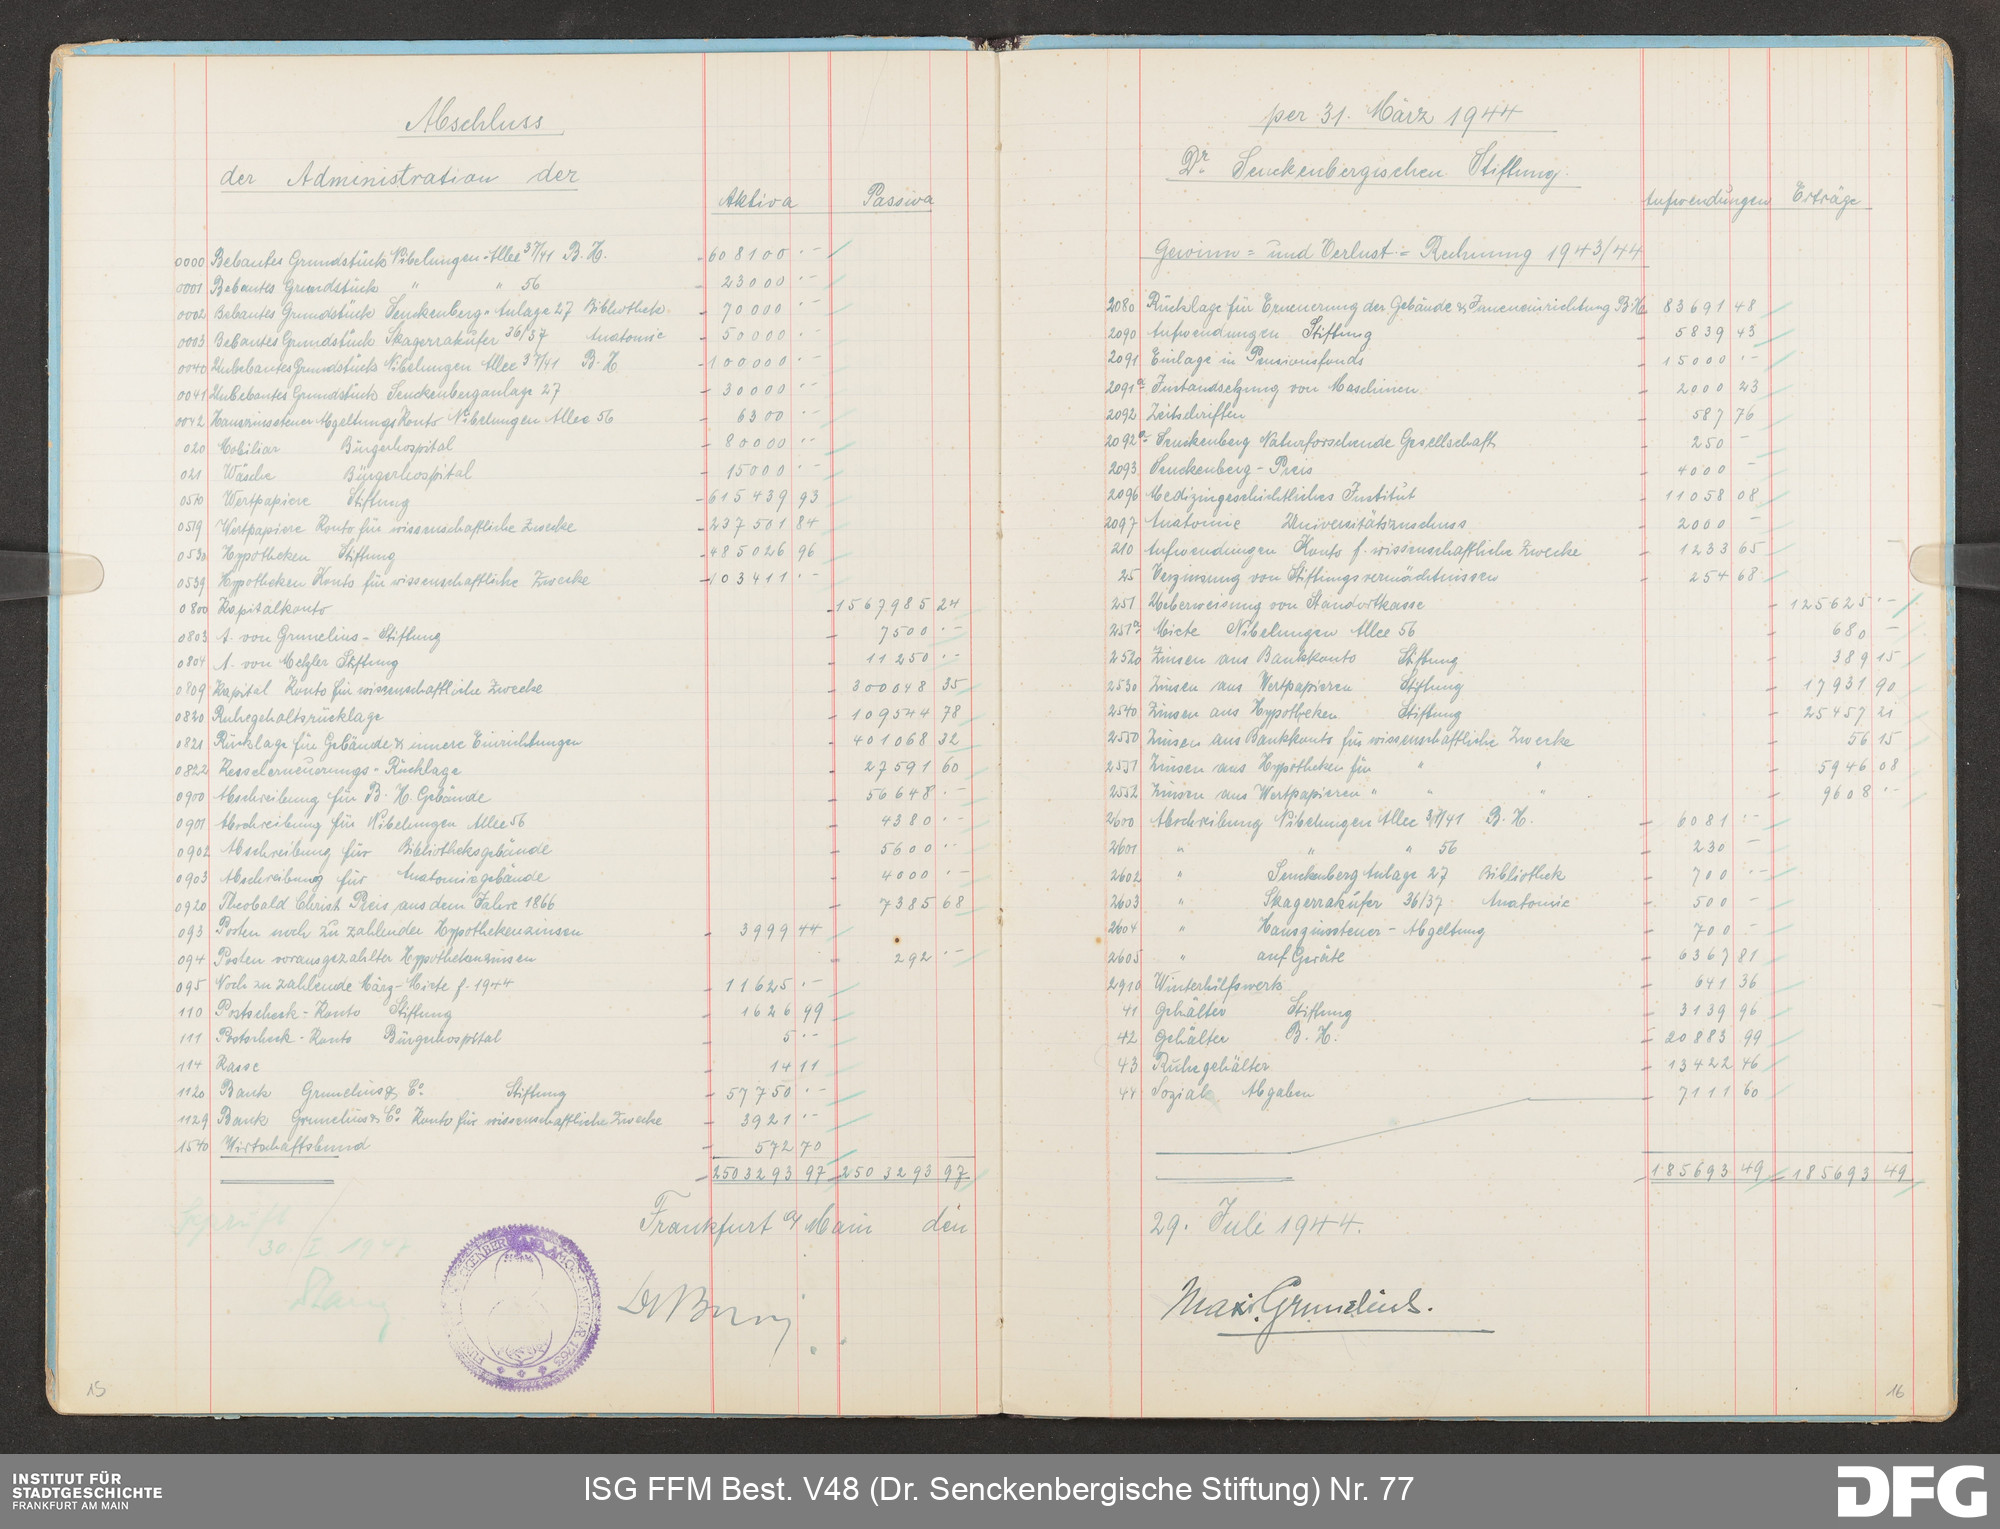 Abschluss
der Administration der
Aktiva Passiva
0000 Bebautes Grundstück Nibelungen-Allee 37/41 B. H. 608100.–
0001 Bebautes Grundstück " " 56 23000.–
0002 Bebautes Grundstück Senckenberg-Anlage 27 Bibliothek 70000.–
0003 Bebautes Grundstück Skagerrakufer 36/37 Anatomie 50000.–
0040 Unbebautes Grundstück Nibelungen Allee 37/41 B. H. 100000.–
0041 Unbebautes Grundstück Senckenberganlage 27 30000.–
0042 Hauszinssteuer Abgeltungs Konto Nibelungen Allee 56 6300.–
020 Mobiliar Bürgerhospital 80000.–
021 Wäsche Bürgerhospital 15000.–
0510 Wertpapiere Stiftung 615439 93
0519 Wertpapiere Konto für wissenschaftliche Zwecke 237501 84
0530 Hypotheken Stiftung 485026 96
0539 Hypotheken Konto für wissenschaftliche Zwecke 103411.–
0800 Kapitalkonto 1567985 24
0803 A. von Grunelius-Stiftung 7500.–
0804 A. von Metzler Stiftung 11250.–
0809 Kapital Konto für wissenschaftliche Zwecke 300048 35
0820 Ruhegehaltsrücklage 109544 78
0821 Rücklage für Gebäude & innere Einrichtungen 401068 32
0822 Kesselerneuerungs-Rücklage 27591 60
0900 Abschreibung für B. H. Gebäude 56648.–
0901 Abschreibung für Nibelungen Allee 56 4380.–
0902 Abschreibung für Bibliotheksgebäude 5600.–
0903 Abschreibung für Anatomiegebäude 4000.–
0920 Theobald Christ Preis aus dem Jahre 1866 7385 68
093 Posten noch zu zahlender Hypothekenzinsen 3999 44
094 Posten vorausgezahlter Hypothekenzinsen 292.–
095 Noch zu zahlende März-Miete f. 1944 11625.–
110 Postscheck-Konto Stiftung 1626 99
111 Postscheck-Konto Bürgerhospital 5.–
114 Kasse 14 11
1120 Bank Grunelius & Co. Stiftung 57750.–
1129 Bank Grunelius & Co. Konto für wissenschaftliche Zwecke 3921.–
1540 Wirtschaftsbund 572 70
2503293 97 2503293 97
Geprüft
30. I. 194
Frankfurt a/Main den
15
per 31. März 1944
Dr. Senckenbergischen Stiftung.
Aufwendungen Erträge
Gewinn- und Verlust-Rechnung 1943/44
2080 Rücklage für Erneuerung der Gebäude & Inneneinrichtung B.H. 83691 48
2090 Aufwendungen Stiftung 5839 43
2091 Einlage in Pensionsfonds 15000.–
2091a Instandsetzung von Maschinen 2000 23
2092 Zeitschriften 587 76
2092a Senckenberg Naturforschende Gesellschaft 250 –
2093 Senckenberg-Preis 4000 –
2096 Medizingeschichtliches Institut 11058 08
2097 Anatomie Universitätszuschuss 2000 –
210 Aufwendungen Konto f. wissenschaftliche Zwecke 1233 65
25 Verzinsung von Stiftungsvermächtnissen 254 68
251 Ueberweisung von Standortkasse 125625.–
251a Miete Nibelungen Allee 56 680 –
2520 Zinsen aus Bankkonto Stiftung 389 15
2530 Zinsen aus Wertpapieren Stiftung 17931 90
2540 Zinsen aus Hypotheken Stiftung 25457 21
2550 Zinsen aus Bankkonto für wissenschaftliche Zwecke 56 15
2551 Zinsen aus Hypotheken für " " 5946 08
2552 Zinsen aus Wertpapieren " " " 9608.–
2600 Abschreibung Nibelungen Allee 37/41 B. H. 6081.–
2601 " " " 56 230 –
2602 " Senckenberg Anlage 27 Bibliothek 700.–
2603 " Skagerrakufer 36/37 Anatomie 500 –
2604 " Hauszinssteuer-Abgeltung 700 –
2605 " auf Geräte 6367 81
2910 Winterhilfswerk 641 36
41 Gehälter Stiftung 3139 96
42 Gehälter B. H. 20883 99
43 Ruhegehälter 13422 46
44 Sozial Abgaben 7111 60
185693 49 185693 49
29. Juli 1944.
Max Grunelius.
16
INSTITUT FÜR
STADTGESCHICHTE
FRANKFURT AM MAIN
ISG FFM Best. V48 (Dr. Senckenbergische Stiftung) Nr. 77
DFG